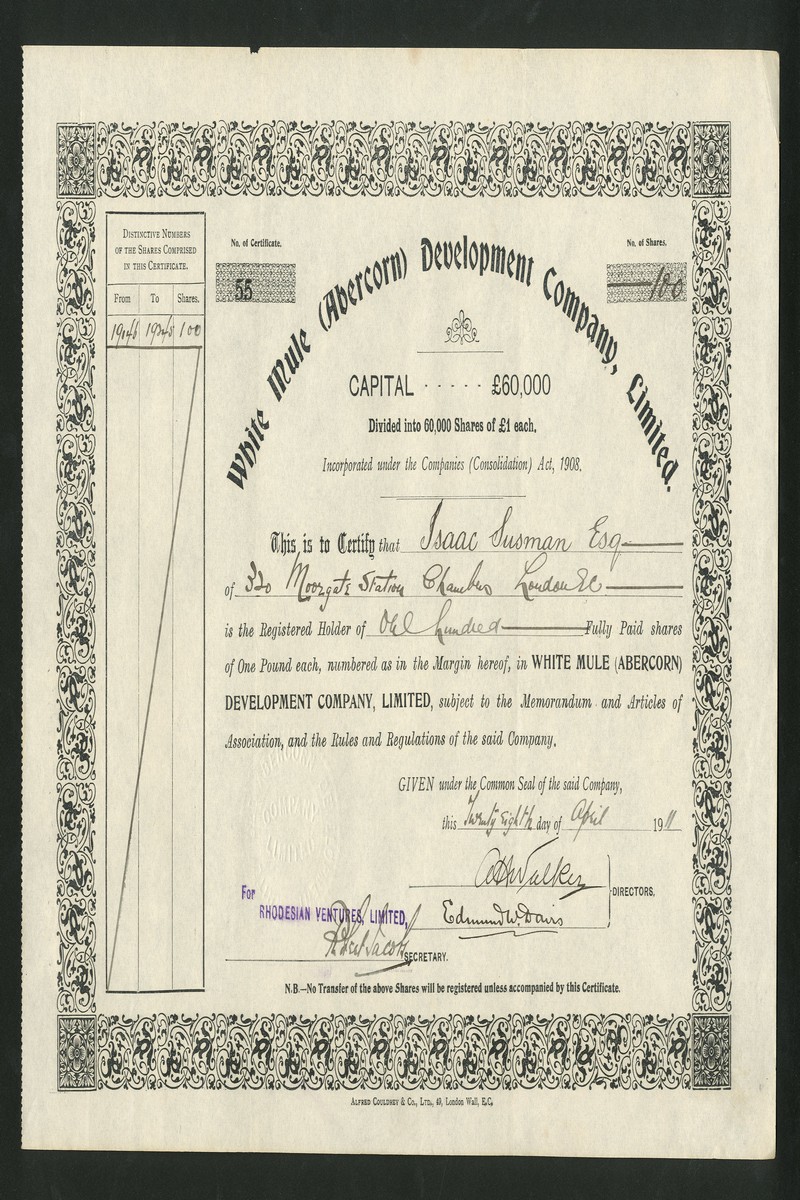 DISTINCTIVE NUMBERS
OF THE SHARES COMPRISED
IN THIS CERTIFICATE.
From To Shares.
100
No. of Certificate.
55
No. of Shares.
100
White Mule (Abercorn) Development Company, Limited.
CAPITAL - - - - - £60,000
Divided into 60,000 Shares of £1 each.
Incorporated under the Companies (Consolidation) Act, 1908.
This is to Certify that Isaac Susman Esq
of 320 Moorgate Station Chambers London EC
is the Registered Holder of One hundred Fully Paid shares
of One Pound each, numbered as in the Margin hereof, in WHITE MULE (ABERCORN)
DEVELOPMENT COMPANY, LIMITED, subject to the Memorandum and Articles of
Association, and the Rules and Regulations of the said Company.
GIVEN under the Common Seal of the said Company,
this Twenty Eighth day of April 1911
Walker
DIRECTORS.
For
RHODESIAN VENTURES, LIMITED,
Edmund W. Davis
Jacobs
SECRETARY.
N.B.—No Transfer of the above Shares will be registered unless accompanied by this Certificate.
ALFRED COULDREY & CO., LTD., 49, London Wall, E.C.